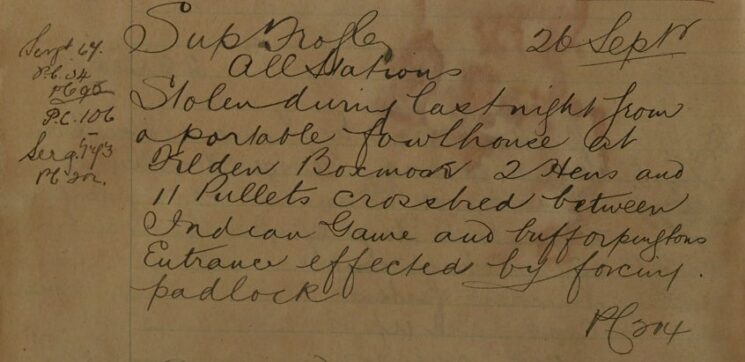 Sergt 67.
P.C. 34
PC 95
P.C. 106
Serg.
PC 202.
Sup Frogley 26 Septr
All Stations
Stolen during last night from
a portable fowlhouse at
Felden Boxmoor 2 Hens and
11 Pullets crossbred between
Indian Game and bufforpingtons
Entrance effected by forcing.
padlock
PC 204